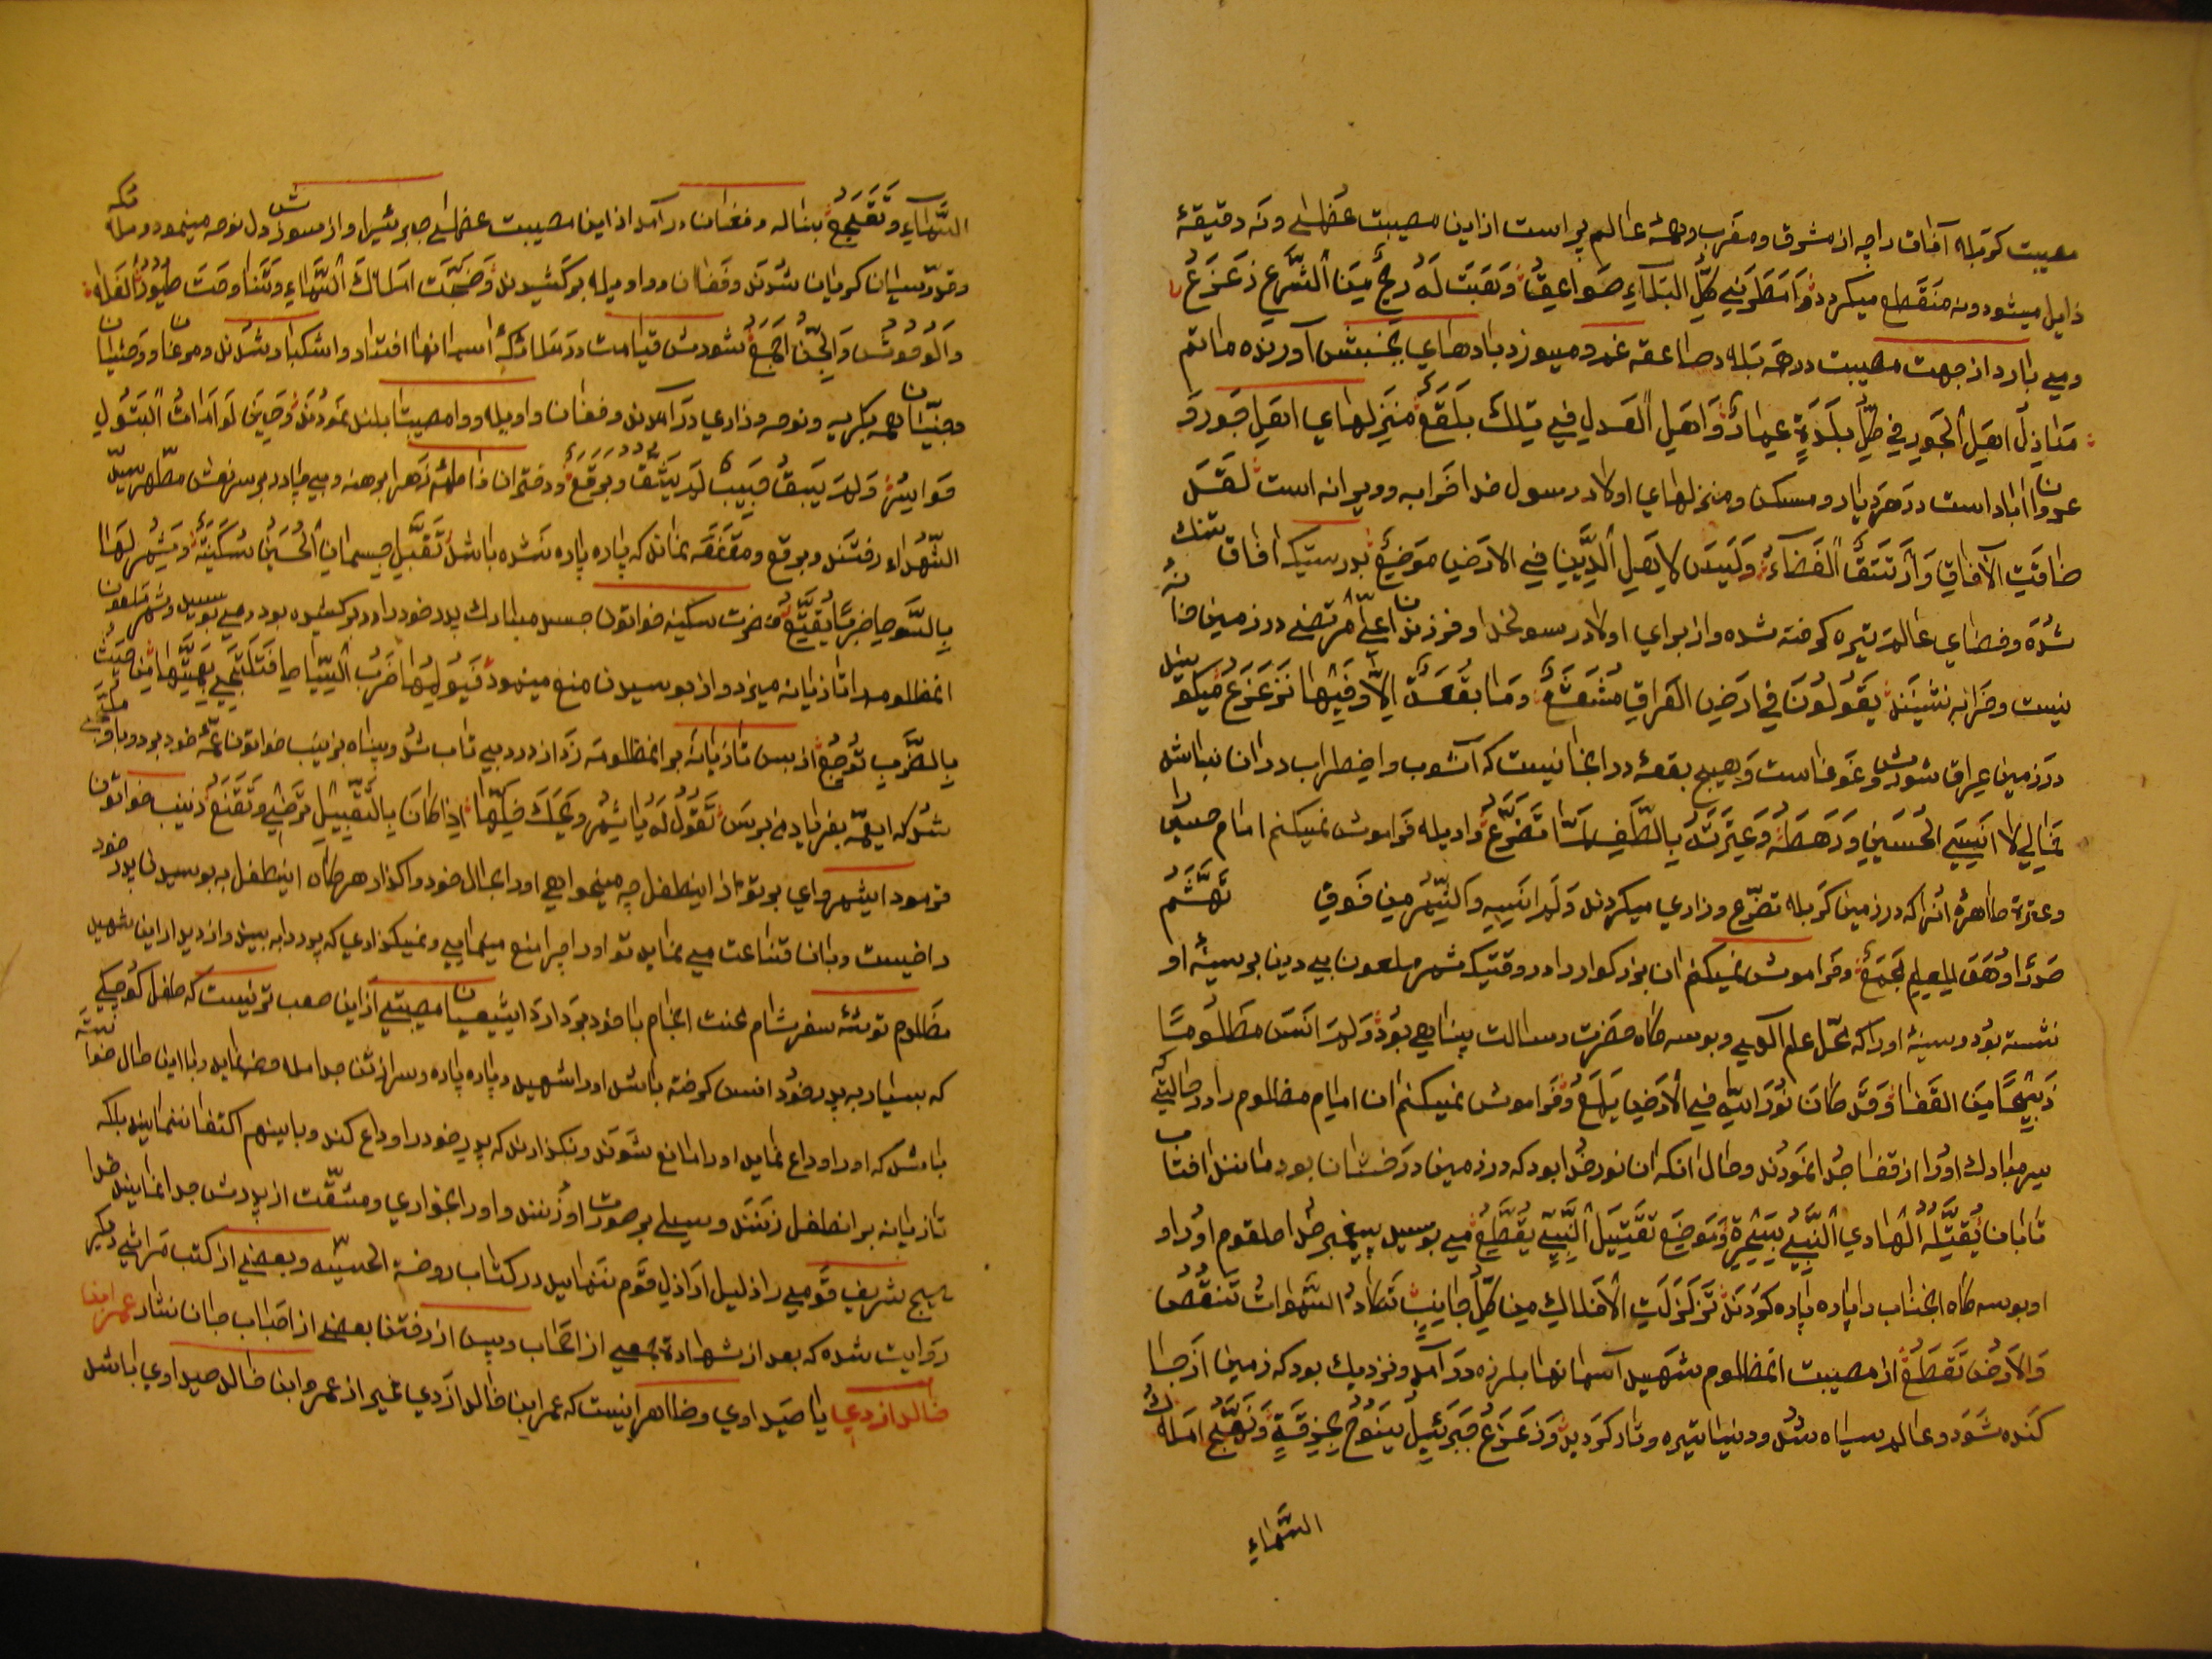 مصیبت کربلا آفاق را چه از مشرق و مغرب و همهٔ عالم پر است از این مصیبت عظمی و نه دقیقهٔ
زایل میشود و نه منقطع میکردد وَاَمْطَرَنِی کُلُّ الْبَلَاءِ صَوَاعِقُ وَهَبَّتْ لَهُ رِیحٌ مِنَ الشَّرِّ زَعْزَعُ
و می بارد از جهت مصیبت در همه بلاد صاعقه غم و میوزد بادهای بجنبش آورنده ماتم
مَنَازِلُ اَهْلِ الْجَوْرِ فِی کُلِّ بَلْدَةٍ عِمَارٌ وَاَهْلُ الْعَدْلِ فِی تِلْکَ بَلْقَعُ منزلهای اهل جور و
عدوان اباد است در هر دیار و مسکن و منزلهای اولاد رسول خدا خرابه و ویرانه است لَقَدْ
ضَاقَتِ الْآفَاقُ وَ الْفَضَاءُ وَلَیْسَ لِاَهْلِ الدِّینِ فِی الْاَرْضِ مَوْضِعُ بدرستیکه افاق تنک
شده و فضای عالم تیره کرفته شده و از برای اولاد رسولخدا و فرزندان علی مرتضی در زمین خانهٔ
نیست و خرابه نشینند یَقُولُونَ فِی اَرْضِ الْعِرَاقِ مُشَعْشَعُ وَمَا بُقْعَةٌ اِلَّا وَفِیهَا تَزَعْزُعُ میکویند
در زمین عراق شورش و غوغاست و هیچ بقعهٔ در انجا نیست که آشوب و اضطراب در ان نباشد
تَمَالِی لَا اَنْسَی الْحُسَیْنَ وَرَهْطَهُ وَعِتْرَتَهُ بِالطَّفِّ لَمَّا تَضَرَّعُ واویلا فراموش نمیکنم امام حسین
و عترة طاهرهٔ انرا که در زمین کربلا تضرّع و زاری میکردند وَلَمْ اَنْسَهُ وَالشِّمْرُ مِنْ فَوْقِ تَهَشَّمَ
صَدْرًا وَهْوَ لِلْعِلْمِ مَجْمَعُ و فراموش نمیکنم ان بزرکوار را در وقتیکه شمر ملعون بی دین بر سینهٔ او
نشسته بود و سینهٔ او را که محل علم الهی و بوسه کاه حضرت رسالت پناهی بود وَلَمْ اَنْسَ مَظْلُومًا
ذَبِیحًا مِنَ الْقَفَا وَقَدْ کَانَ نُورُ اللّٰهِ فِی الْاَرْضِ یَلْمَعُ و فراموش نمیکنم ان امام مظلوم را در حالتیکه
سر مبارک او را از قفا جدا نمودند و حال انکه ان نور خدا بود که در زمین درخشان بود مانند افتاب
تابان یُقَبِّلُهُ الْهَادِی النَّبِیُّ وَمَوْضِعُ تَقْبِیلِ النَّبِیِّ یُقَطَّعُ می بوسید پیغمبر خدا حلقوم او را و
او بوسه کاه انجناب را پاره پاره کردند تَزَلْزَلَتِ الْاَفْلَاکُ مِنْ کُلِّ جَانِبٍ تَکَادُ السَّمٰوَاتُ تَنْقَضُّ
وَالْاَرْضُ تَقْطَعُ از مصیبت انمظلوم شهید آسمانها بلرزه درآمد و نزدیک بود که زمین از جا
کنده شود و عالم سیاه شد و دنیا تیره و تار کردید وَزَعْزَعَ جِبْرَئِیلُ یَنُوحُ بِحُرْقَةٍ وَتَضِجُّ اَمْلَاکُ
السَّمَاءِ
السَّمَاءِ وَتَفْجَعُ بناله و فغان درآمد از این مصیبت عظمی جبرئیل و از سوزش دل نوحه مینمود و ملائکه
و قدّسیان کریان شدند و فغان و واویلا برکشیدند وَضَجَّتْ اَمْلَاکُ السَّمَاءِ وَتَنَاوَحَتْ طُیُورُ الْفَلَا
وَالْوُحُوشُ وَالْجِنُّ اَجْمَعُ شورش قیامت در ملائکهٔ اسمانها افتاد و اشکبار شدند و مرغان و وحشیان
و جنّیان همه بکریه و نوحه و زاری درآمدند و فغان و اویلا و وا مصیبتا بلند نمودند وَحِینَ بَنَاتُ الْبَتُولِ
حَوَاسِرُ وَلَمْ یَبْقَ جَیْبٌ لَمْ یُشَقَّ وَبُرْقَعُ و دختران فاطمهٔ زهرا برهنه و بی چادر بر سر نعش مطهر سیّد
الشّهداء رفتند و برقع و مقنعه نماند که پاره پاره نشده باشد تُقَبِّلُ جِسْمَانَ الْحُسَیْنِ سُکَیْنَةُ وَشِمْرٌ لَهَا
بِالسَّوْطِ ضَرْبًا یُقَنِّعُ حضرت سکینه خواتون جسد مبارک پدر خود را در بر کشیده بود و می بوسید و شمر ملعون
انمظلومه را تازیانه میزد و از بوسیدن منع مینمود فَیُؤْلِمُهَا ضَرْبُ السِّیَاطِ فَتَلْتَجِی بِعَمَّتِهَا مِنْ حَیْثُ
بِالضَّرْبِ تُوجَعُ از بس تازیانه بر انمظلومه زد از درد بی تاب شد و پناه بزینب خواتون عمّهٔ خود برد و باو می
شد که ایعمه بفریادم برس تَقُولُ لَهُ یَا شِمْرُ وَیْحَکَ خَلِّهَا اِذَا کَانَ بِالتَّقْبِیلِ تَرْضَی وَتَقْنَعُ زینب خواتون
فرمود ایشمر وای بر تو از اینطفل چه میخواهی او را بحال خود واکذار هرکاه اینطفل به بوسیدن پدر خود
راضیست و بان قناعت می نماید تو او را چرا منع مینمایی و نمیکذاری که پدر را به بیند و از دیدار این شهید
مظلوم توشهٔ سفر شام محنت انجام با خود بردارد ایشیعیان مصیبتی از این صعب تر نیست که طفل کوچکی
که بسیار به پدر خود انس کرفته باشد او را شهید و پاره پاره و سر از تن جدا ملاحضه نماید و با این حال خواسته
باشد که او را وداع نماید او را مانع شوند و نکذارند که پدر خود را وداع کند و باینهم اکتفا ننمایند بلکه
تازیانه بر انطفل زنند و سیلی بر صورت او زنند و او را بخواری و مشقّت از پدرش جدا نمایند خدا
هیچ شریف قومی را ذلیل اراذل قوم ننماید در کتاب روضة الحسینیه و بعضی از کتب مراثی دیگر
روایت شده که بعد از شهادة جمعی از اصحاب و پس از رفتن بعضی از احباب جان نثار عمر ابن
خالد ازدی یا صیداوی و ظاهر اینست که عمر ابن خالد ازدی غیر از عمرو ابن خالد صیداوی باشد